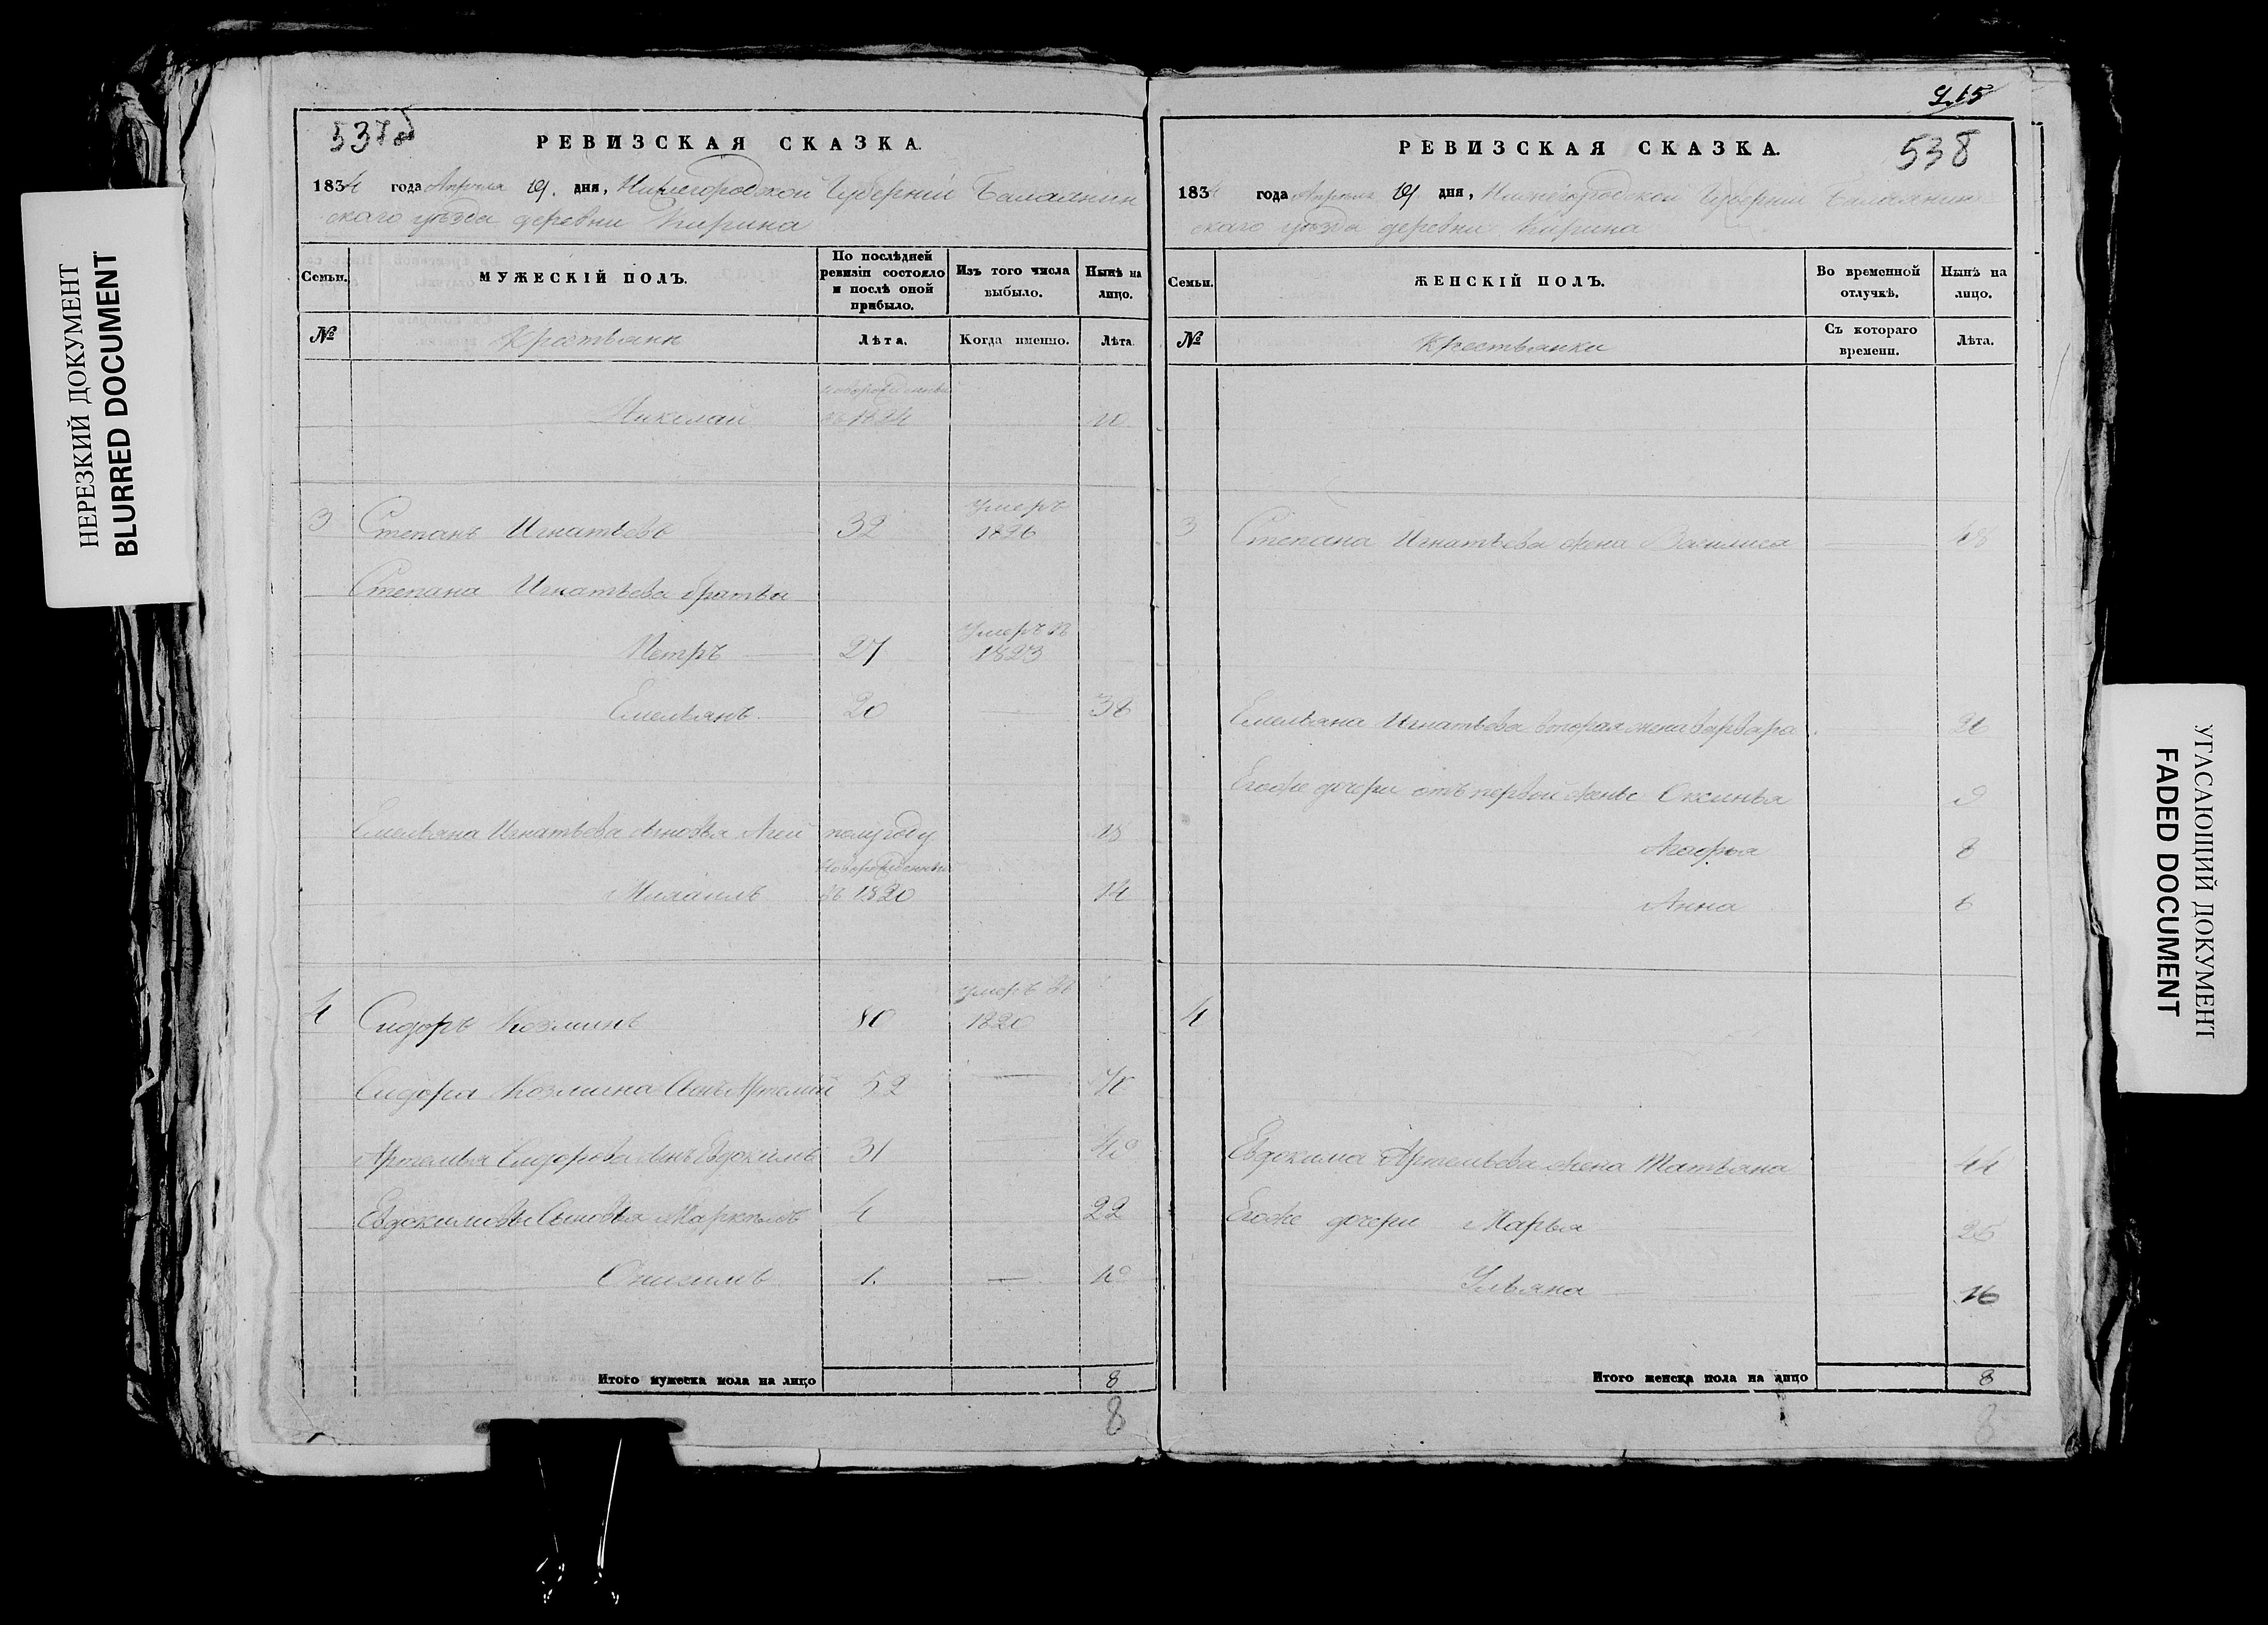 НЕРЕЗКИЙ ДОКУМЕНТ
BLURRED DOCUMENT
537об
РЕВИЗСКАЯ СКАЗКА.
1834 года Апреля 19. дня, Нижегородской Губерніи Балахнин
скаго уѣзда деревни Кирина
Семьи.
МУЖЕСКІЙ ПОЛЪ.
По послѣдней ревизіи состояло и послѣ оной прибыло.
Изъ того числа выбыло.
Нынѣ на лицо.
№
Крестьяне
Лѣта.
Когда именно.
Лѣта.
новорожденный
Николай въ 1824 10
3 Степанъ Игнатьевъ 32 Умеръ 1826
Степана Игнатьева братья
Петръ 27 Умеръ въ 1823
Емельянъ. 20 36
Емельяна Игнатьева сыновья полугоду 18
новорожденный
Михаилъ въ 1820 14
4 Сидоръ Козминъ 80 умеръ въ 1820
Сидора Козмина сынъ Артемій 52
Артемья Сидорова сынъ Евдокимъ 31
Евдокимовы сыновья 22
Онисимъ
Итого мужеска пола на лицо 8
8
538
РЕВИЗСКАЯ СКАЗКА.
1834 года Апреля 19 дня, Нижегородской Губерніи Балахнин
скаго уѣзда деревни Кирина
Семьи.
ЖЕНСКІЙ ПОЛЪ.
Во временной отлучкѣ.
Нынѣ на лицо.
№
Крестьянки
Съ котораго времени.
Лѣта.
3 Степана Игнатьева жена Василиса 48
Емельяна Игнатьева вторая жена Варвара
Егоже дочери отъ первой жены Оксинья 9
Агафья 8
Анна 6
4
Евдокима Артемьева жена Татьяна 44
Егоже дочери Марья
Ульяна 16
Итого женска пола на лицо 8
8
УГАСАЮЩИЙ ДОКУМЕНТ
FADED DOCUMENT